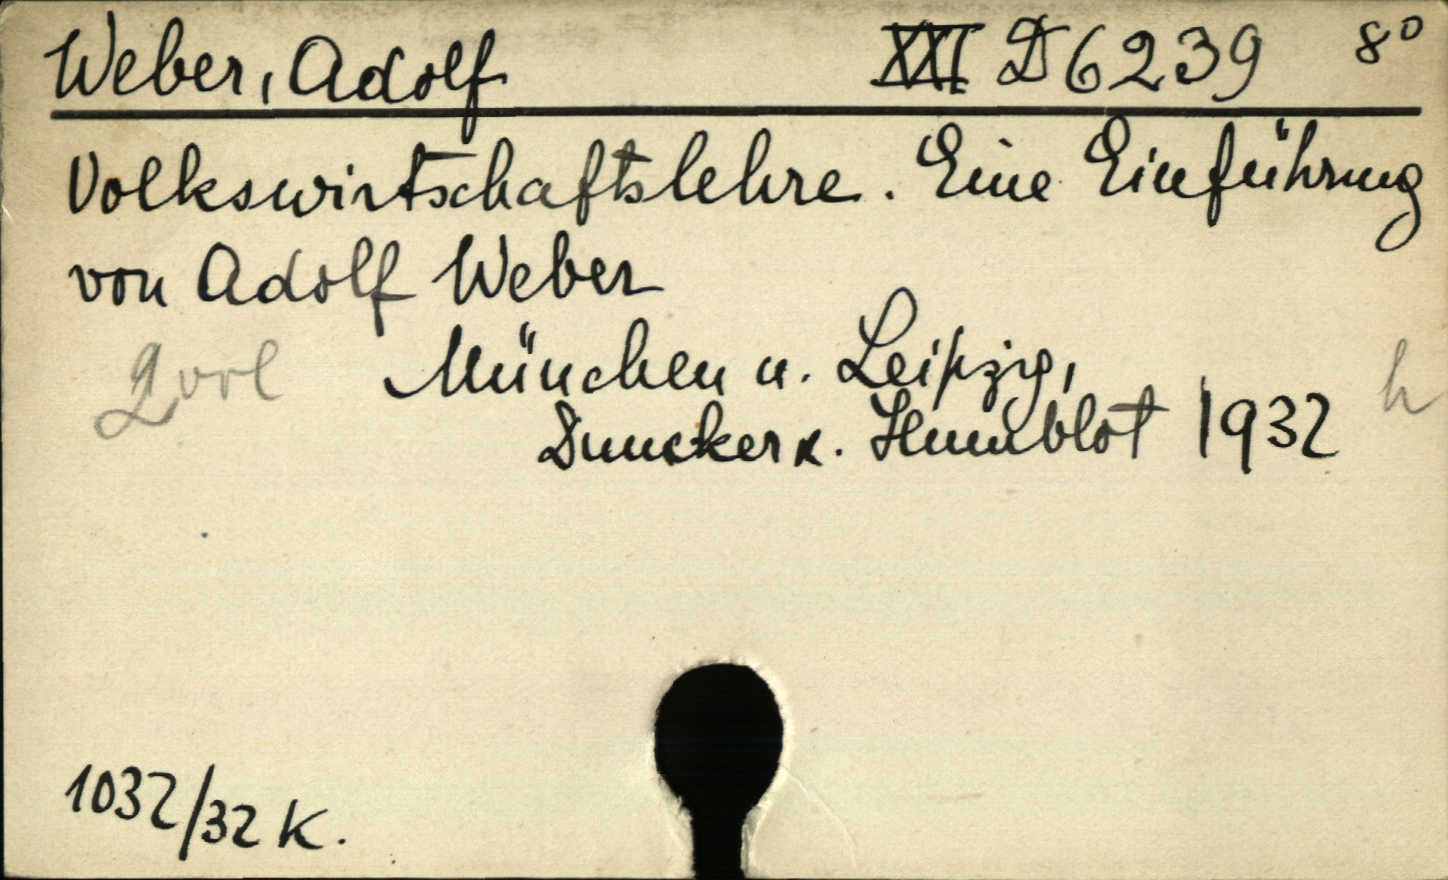 Weber, Adolf XXI D 6239 8°
Volkswirtschaftslehre. Eine Einführung
von Adolf Weber
München u. Leipzig, h
Duncker u. Humblot 1932
1032/32 K.